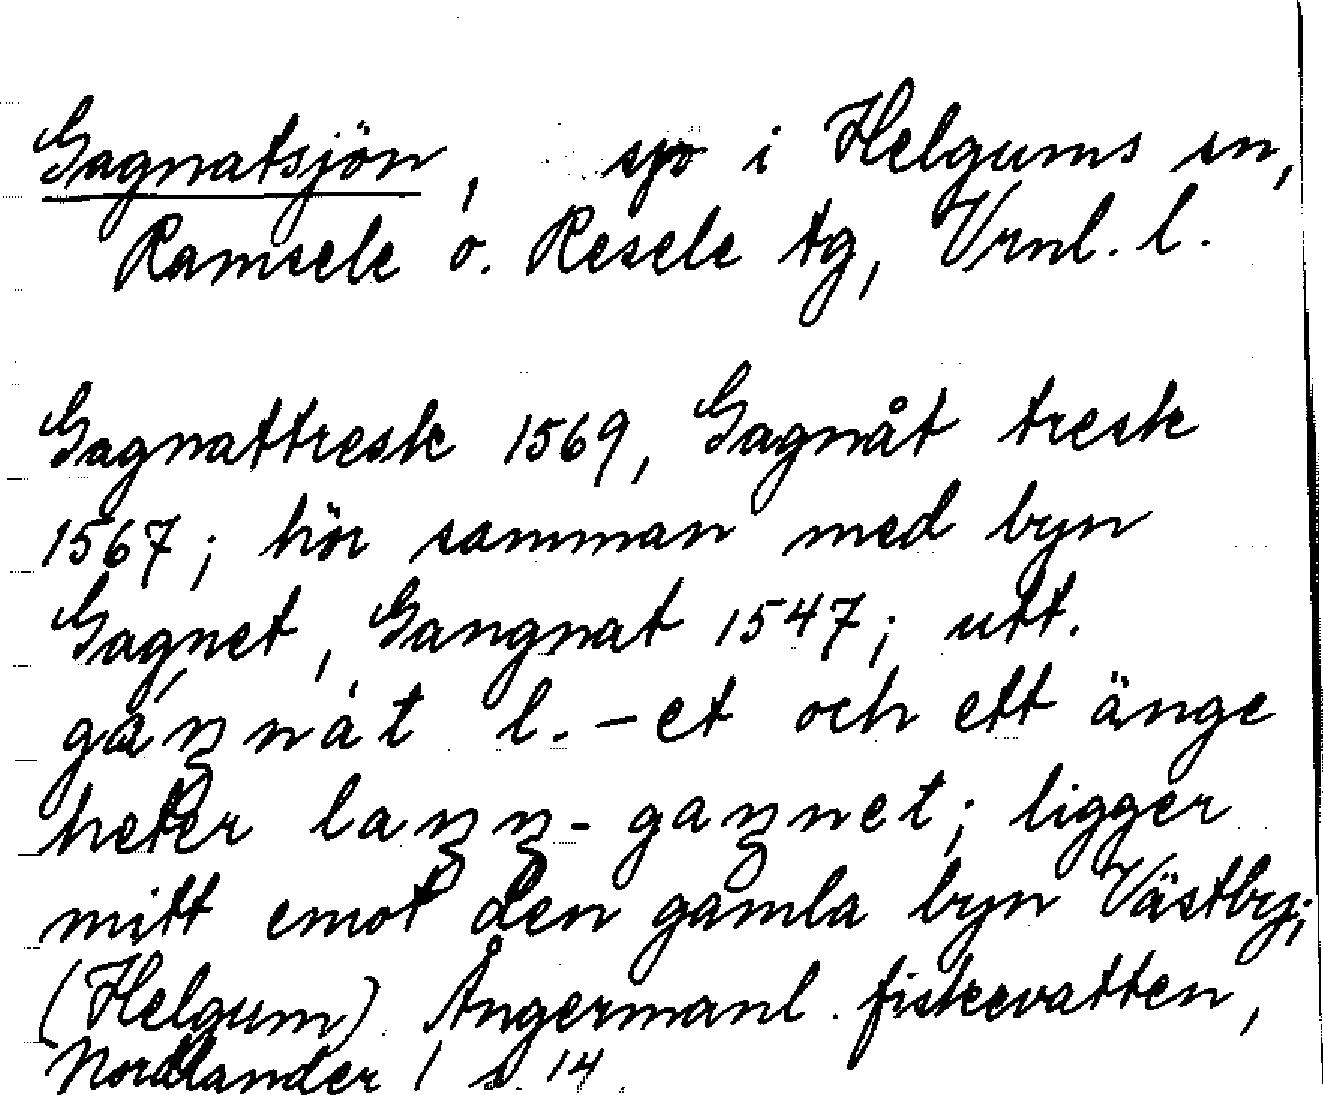 Gagnatsjön, sjö i Helgums sn,
Ramsele o. Resele tg, Vrnl. l.
Gagnattresk 1569, Gagnåt tresk
1567; hör samman med byn
Gagnet, Gangnat 1547; utt.
gáŋnåt l. -et och ett änge
heter laŋŋ-gaŋnet; ligger
mitt emot den gamla byn Västby;
(Helgum) Ångermanl. fiskevatten,
Nordlander 1 s. 14.